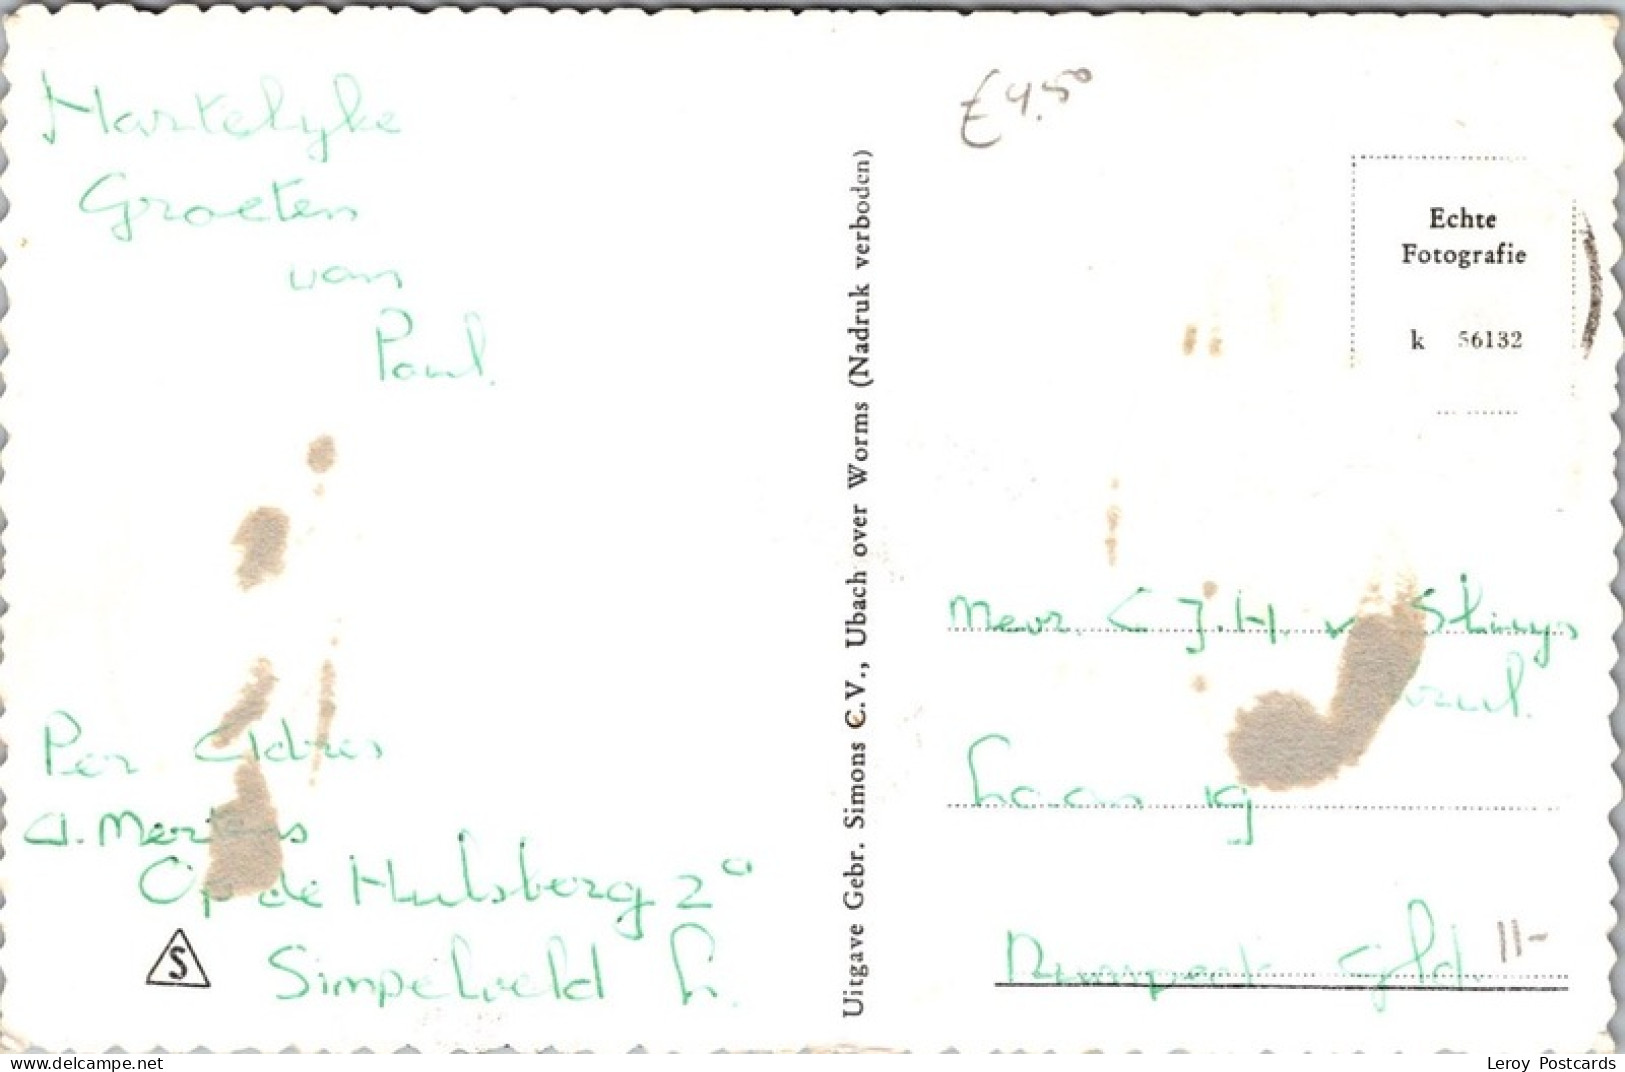 Hartelyke
Groeten
van
Paul.
Per Adres
A. Mertens
Op de Hulsberg 2a
Simpelveld L.
S
Uitgave Gebr. Simons C.V., Ubach over Worms (Nadruk verboden)
£ 4.50
Echte
Fotografie
k 56132
Mevr. C J.H. v Stuys
Laan 19
Nunspeet Gld.
11-
delcampe.net
Leroy Postcards